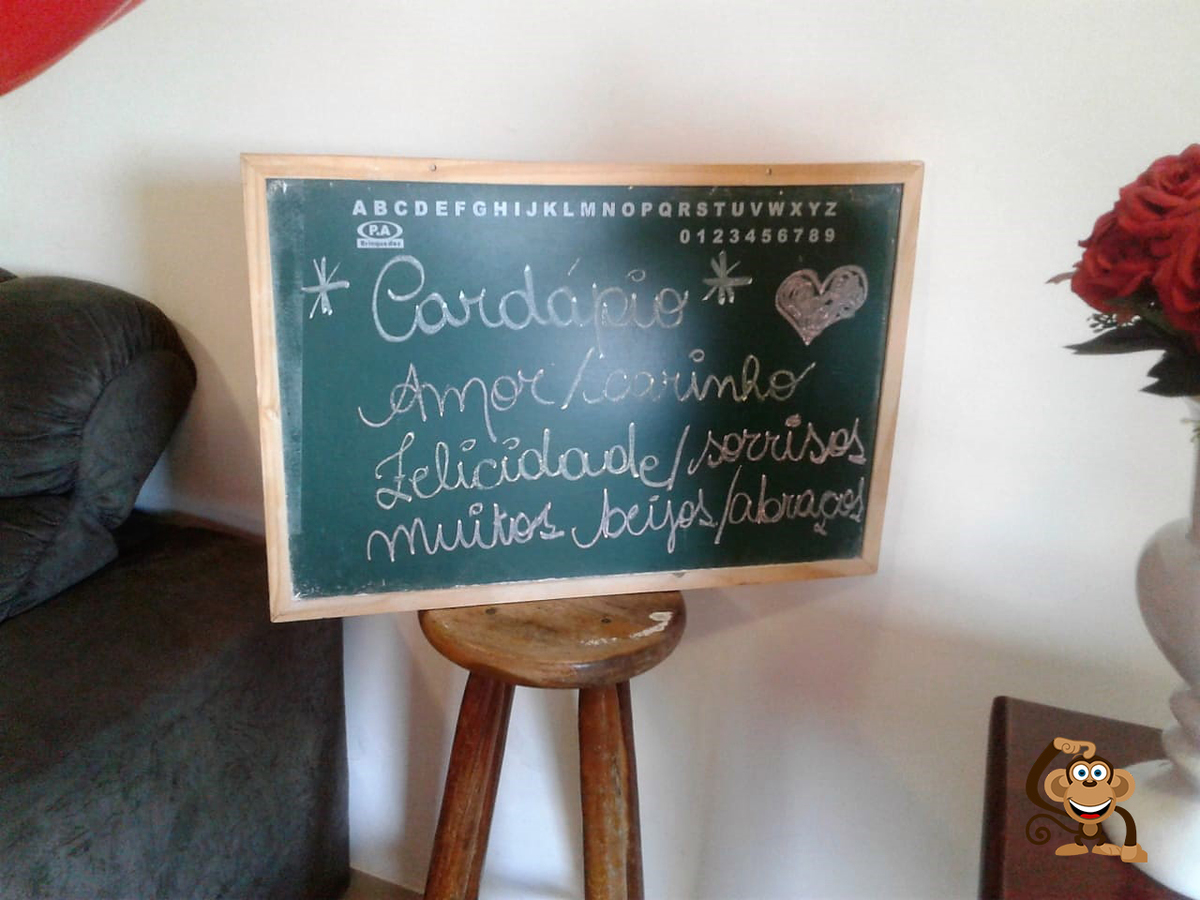 ABCDEFGHIJKLMNOPQRSTUVWXYZ
P.A
Brinquedos
0123456789
* Cardápio *
Amor/carinho
Felicidade/sorrisos
muitos beijos/abraços